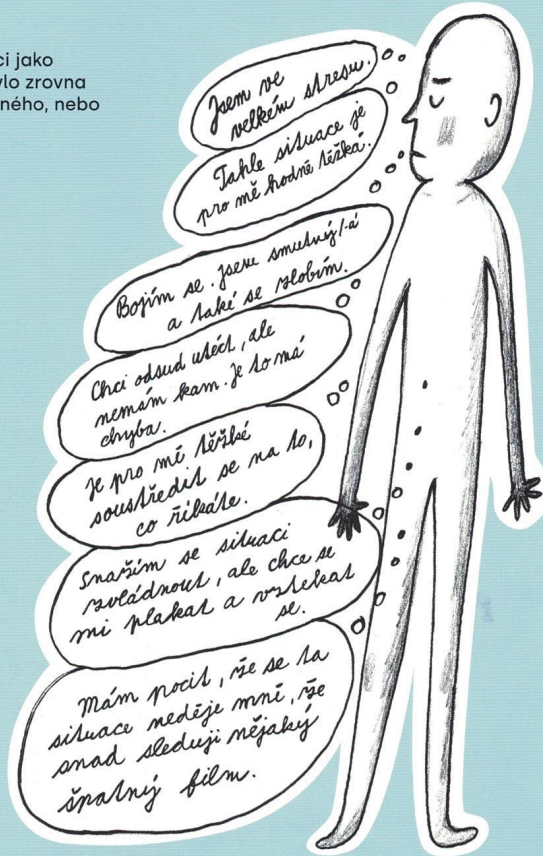 ci jako
ylo zrovna
ného, nebo
Jsem ve
velkém stresu.
Tahle situace je
pro mě hodně těžká.
Bojím se. jsem smutný/-á
a také se zlobím.
Chci odsud utéct, ale
nemám kam. Je to má
chyba.
Je pro mě těžké
soustředit se na to,
co říkáte.
Snažím se situaci
zvládnout, ale chce se
mi plakat a vztekat
se.
Mám pocit, že se ta
situace neděje mně, že
snad sleduji nějaký
špatný film.